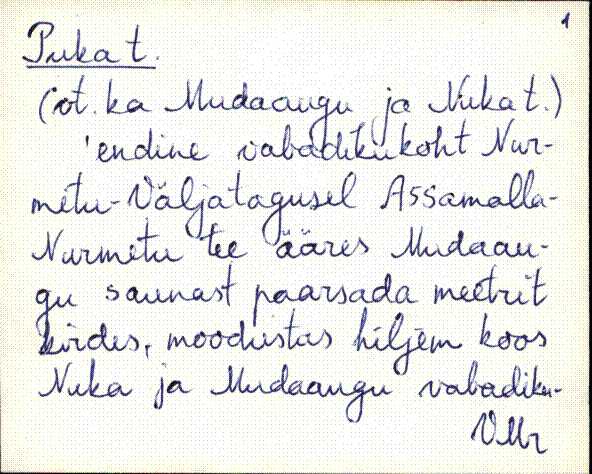 1
Puka t.
(vt. ka Mudaaugu ja Nuka t.)
'endine vabadikukoht Nur-
metu-Väljatagusel Assamalla-
Nurmetu tee ääres Mudaau-
gu saunast paarsada meetrit
kirdes, moodustas hiljem koos
Nuka ja Mudaaugu vabadiku-
VMr